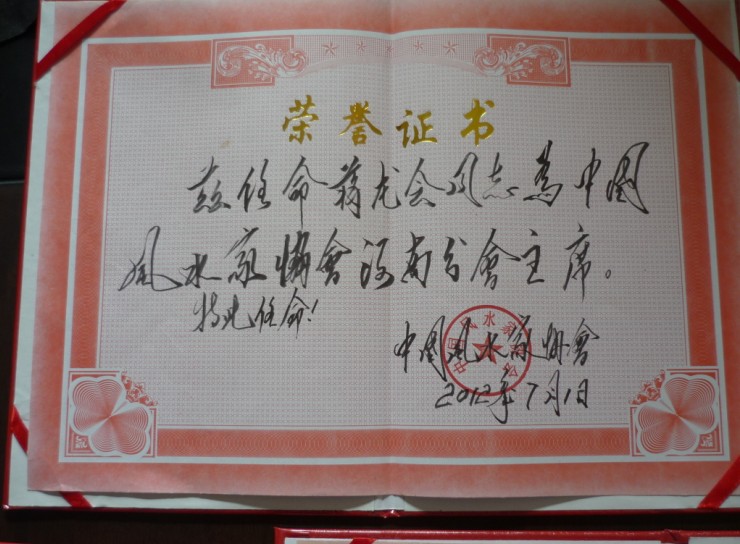 荣誉证书
兹任命蒋龙会同志为中国
风水家协會河南分會主席。
特此任命!
中国风水家协會
2012年7月1日